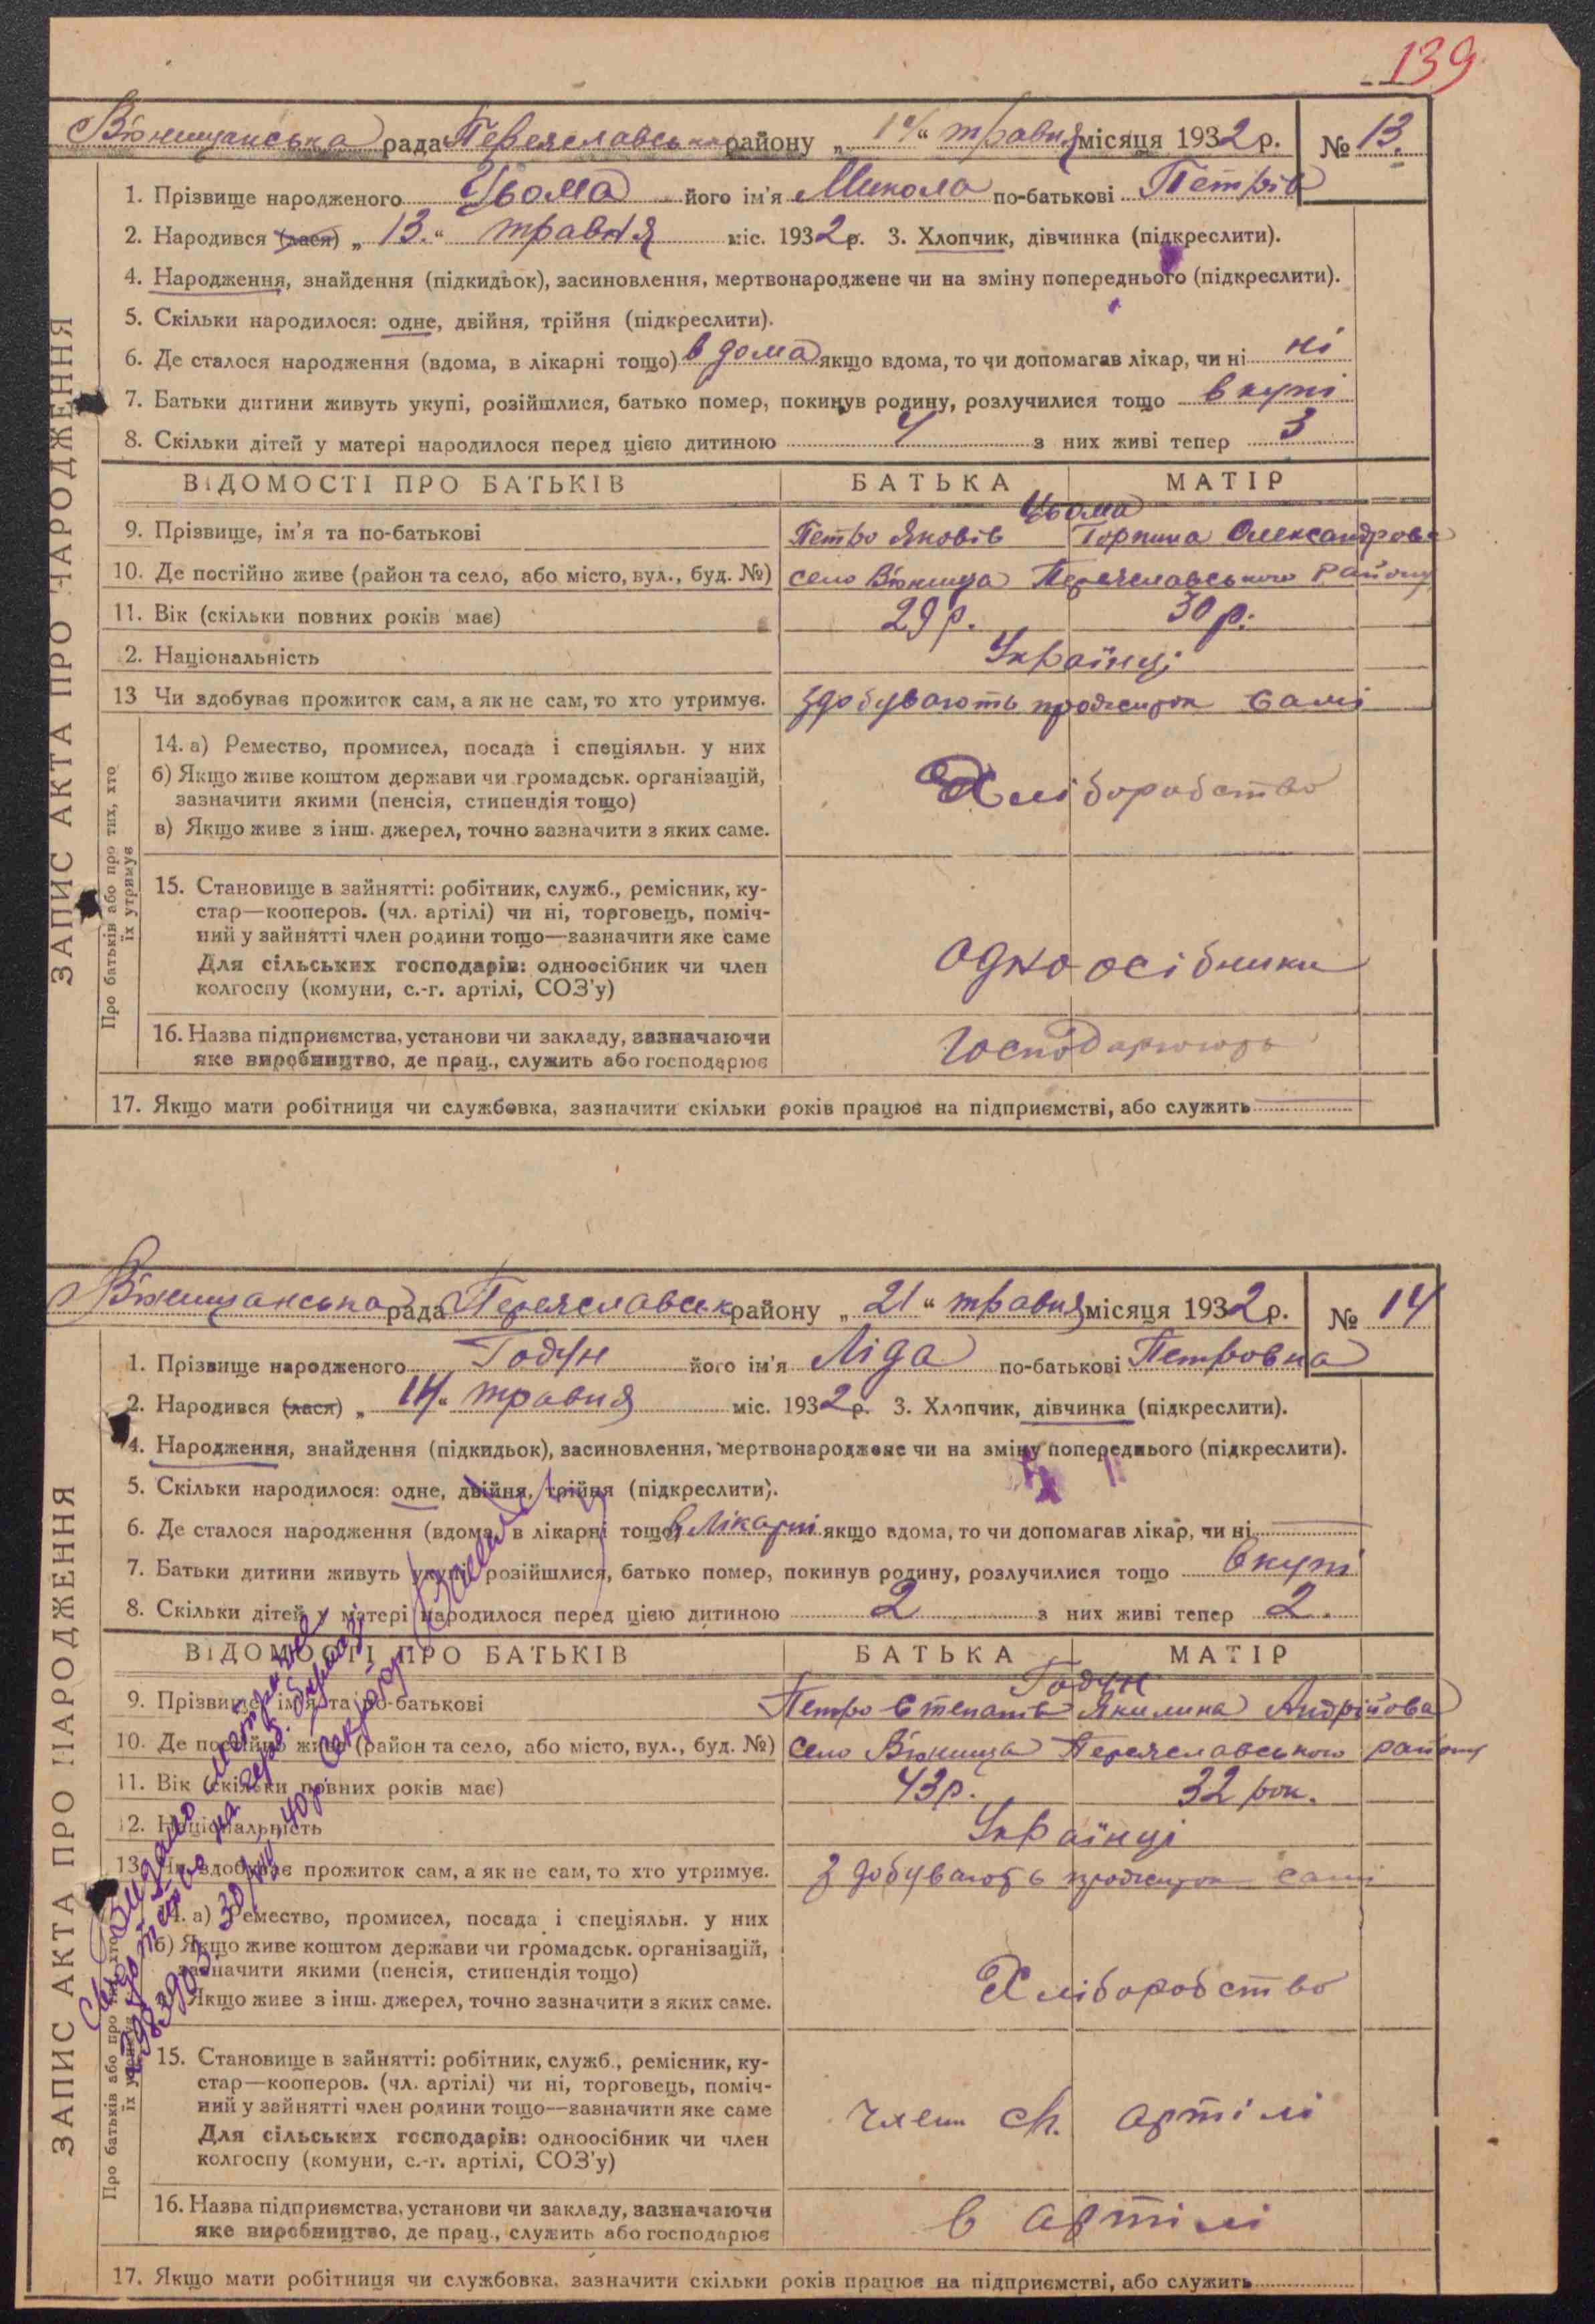 139
В'юнищанська рада Переяславськ району „ “ травня місяця 1932 р. № 13.
1. Прізвище народженого Цьома його ім'я Микола по-батькові Петрів
2. Народився (лася) „ 13. “ травня міс. 1932 р. 3. Хлопчик, дівчинка (підкреслити).
4. Народження, знайдення (підкидьок), засиновлення, мертвонароджене чи на зміну попереднього (підкреслити).
5. Скільки народилося: одне, двійня, трійня (підкреслити).
6. Де сталося народження (вдома, в лікарні тощо) в дома якщо вдома, то чи допомагав лікар, чи ні ні
7. Батьки дитини живуть укупі, розійшлися, батько помер, покинув родину, розлучилися тощо вкупі
8. Скільки дітей у матері народилося перед цією дитиною 4 з них живі тепер 3
ВІДОМОСТІ ПРО БАТЬКІВ БАТЬКА МАТІР
Цьома
9. Прізвище, ім'я та по-батькові Петро Яковів Горпина Олександрова
10. Де постійно живе (район та село, або місто, вул., буд. №) село В'юнища Переяславського району
11. Вік (скільки повних років має) 29 р. 30 р.
2. Національність Українці
13 Чи здобуває прожиток сам, а як не сам, то хто утримує. здобувають прожиток самі
14. а) Ремество, промисел, посада і спеціяльн. у них
б) Якщо живе коштом держави чи громадськ. організацій,
зазначити якими (пенсія, стипендія тощо) Хліборобство
в) Якщо живе з інш. джерел, точно зазначити з яких саме.
15. Становище в зайнятті: робітник, служб., ремісник, ку-
стар—кооперов. (чл. артілі) чи ні, торговець, поміч-
ний у зайнятті член родини тощо—зазначити яке саме
Для сільських господарів: одноосібник чи член одноосібники
колгоспу (комуни, с.-г. артілі, СОЗ'у)
16. Назва підприємства, установи чи закладу, зазначаючи
яке виробництво, де прац., служить або господарює господарюють
17. Якщо мати робітниця чи службовка, зазначити скільки років працює на підприємстві, або служить
ЗАПИС АКТА ПРО НАРОДЖЕННЯ
Про батьків або про тих, хто
їх утримує
В'юнищанська рада Переяславськ району „ 21 “ травня місяця 1932 р. № 14
1. Прізвище народженого Годун його ім'я Ліда по-батькові Петровна
2. Народився (лася) „ 14 “ травня міс. 1932 р. 3. Хлопчик, дівчинка (підкреслити).
4. Народження, знайдення (підкидьок), засиновлення, мертвонароджене чи на зміну попереднього (підкреслити).
5. Скільки народилося: одне, двійня, трійня (підкреслити).
6. Де сталося народження (вдома, в лікарні тощо) в лікарні якщо вдома, то чи допомагав лікар, чи ні
7. Батьки дитини живуть укупі, розійшлися, батько помер, покинув родину, розлучилися тощо вкупі
8. Скільки дітей у матері народилося перед цією дитиною 2 з них живі тепер 2.
ВІДОМОСТІ ПРО БАТЬКІВ БАТЬКА МАТІР
Годун
9. Прізвище, ім'я та по-батькові Петро Степанів Якилина Андрійова
10. Де постійно живе (район та село, або місто, вул., буд. №) село В'юнища Переяславського району
11. Вік (скільки повних років має) 43 р. 32 рок.
12. Національність Українці
13. Чи здобуває прожиток сам, а як не сам, то хто утримує. здобувають прожиток самі
14. а) Ремество, промисел, посада і спеціяльн. у них
б) Якщо живе коштом держави чи громадськ. організацій,
зазначити якими (пенсія, стипендія тощо) Хліборобство
в) Якщо живе з інш. джерел, точно зазначити з яких саме.
15. Становище в зайнятті: робітник, служб., ремісник, ку-
стар—кооперов. (чл. артілі) чи ні, торговець, поміч-
ний у зайнятті член родини тощо—зазначити яке саме член артілі
Для сільських господарів: одноосібник чи член
колгоспу (комуни, с.-г. артілі, СОЗ'у)
16. Назва підприємства, установи чи закладу, зазначаючи
яке виробництво, де прац., служить або господарює в артілі
17. Якщо мати робітниця чи службовка, зазначити скільки років працює на підприємстві, або служить
ЗАПИС АКТА ПРО НАРОДЖЕННЯ
Про батьків або про тих, хто
їх утримує